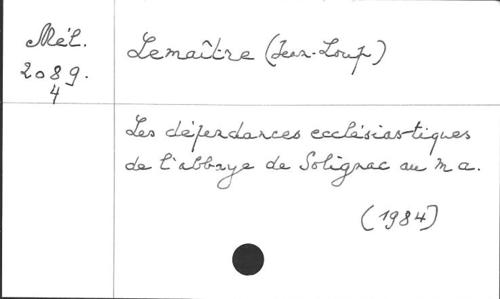 Mél.
2089.
4
Lemaître (Jean-Loup)
Les dépendances ecclésiastiques
de l'abbaye de Solignac au m a.
(1984)